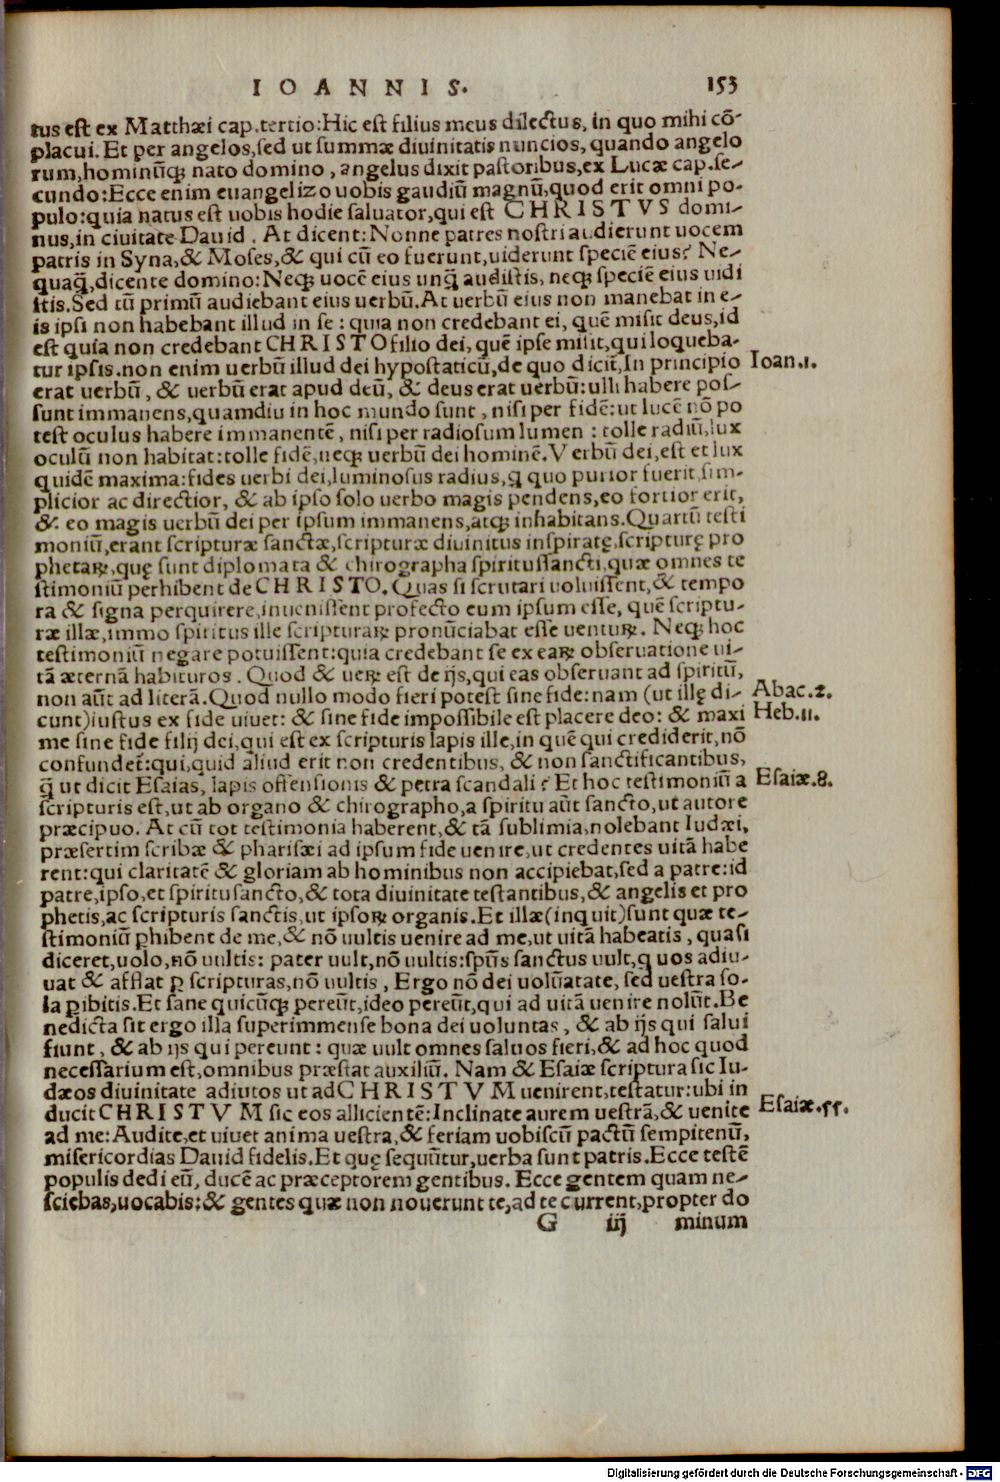 IOANNIS. 153
tus est ex Matthæi cap.tertio:Hic est filius meus dilectus, in quo mihi cō-
placui. Et per angelos,sed ut summæ diuinitatis nuncios, quando angelo
rum,hominūq; nato domino, angelus dixit pastoribus,ex Lucæ cap.se-
cundo:Ecce enim euangelizo uobis gaudiū magnū,quod erit omni po-
pulo:quia natus est uobis hodie saluator,qui est CHRISTVS domi-
nus,in ciuitate Dauid. At dicent:Nonne patres nostri audierunt uocem
patris in Syna,& Moses,& qui cū eo fuerunt,uiderunt speciē eius? Ne-
quaq̄,dicente domino:Neq; uocē eius unq̄ audistis, neq; speciē eius uidi
stis.Sed tū primū audiebant eius uerbū.At uerbū eius non manebat in e-
is ipsi non habebant illud in se: quia non credebant ei, quē misit deus,id
est quia non credebant CHRISTO filio dei, quē ipse misit,qui loqueba-
tur ipsis.non enim uerbū illud dei hypostaticū,de quo dicit,In principio Ioan.1.
erat uerbū, & uerbū erat apud deū, & deus erat uerbū: ulli habere pos-
sunt immanens,quamdiu in hoc mundo sunt, nisi per fidē:ut lucē nō po
test oculus habere immanentē, nisi per radiosum lumen: tolle radiū,lux
oculū non habitat:tolle fidē,neq; uerbū dei hominē.Verbū dei,est et lux
quidē maxima:fides uerbi dei,luminosus radius,q quo purior fuerit,sim-
plicior ac directior, & ab ipso solo uerbo magis pendens,eo fortior erit,
& eo magis uerbū dei per ipsum immanens,atq; inhabitans.Quartū testi
moniū,erant scripturæ sanctæ,scripturæ diuinitus inspiratę,scripturę pro
phetaꝝ,quę sunt diplomata & chirographa spiritussancti,quæ omnes te
stimoniū perhibent de CHRISTO. Quas si scrutari uoluissent,& tempo
ra & signa perquirere,inuenissent profecto eum ipsum esse, quē scriptu-
ræ illæ,immo spiritus ille scripturaꝝ pronūciabat esse uentuꝝ. Neq; hoc
testimoniū negare potuissent:quia credebant se ex eaꝝ obseruatione ui-
tā æternā habituros. Quod & ueꝝ est de ijs,qui eas obseruant ad spiritū,
non aūt ad literā.Quod nullo modo fieri potest sine fide:nam (ut illę di- Abac.2.
cunt)iustus ex fide uiuet: & sine fide impossibile est placere deo: & maxi Heb.11.
me sine fide filij dei,qui est ex scripturis lapis ille,in quē qui crediderit,nō
confundet̄:qui,quid aliud erit non credentibus, & non sanctificantibus,
q̄ ut dicit Esaias, lapis offensionis & petra scandali? Et hoc testimoniū a Esaiæ.8.
scripturis est,ut ab organo & chirographo,a spiritu aūt sancto,ut autore
præcipuo. At cū tot testimonia haberent,& tā sublimia,nolebant Iudæi,
præsertim scribæ & pharisæi ad ipsum fide uenire,ut credentes uitā habe
rent:qui claritatē & gloriam ab hominibus non accipiebat,sed a patre:id
patre,ipso,et spiritusancto,& tota diuinitate testantibus,& angelis et pro
phetis,ac scripturis sanctis,ut ipsoꝝ organis.Et illæ(inquit)sunt quæ te-
stimoniū ꝑhibent de me,& nō uultis uenire ad me,ut uitā habeatis, quasi
diceret,uolo,nō uultis: pater uult,nō uultis:spūs sanctus uult,quos adiu-
uat & afflat ꝑ scripturas,nō uultis, Ergo nō dei uolūatate, sed uestra so-
la ꝑibitis.Et sane quicūq; pereūt,ideo pereūt,qui ad uitā uenire nolūt.Be
nedicta sit ergo illa superimmense bona dei uoluntas, & ab ijs qui salui
fiunt, & ab ijs qui pereunt: quæ uult omnes saluos fieri,& ad hoc quod
necessarium est,omnibus præstat auxiliū. Nam & Esaiæ scriptura sic Iu-
dæos diuinitate adiutos ut ad CHRISTVM uenirent,testatur:ubi in
ducit CHRISTVM sic eos allicientē:Inclinate aurem uestrā,& uenite Esaiæ.55.
ad me:Audite,et uiuet anima uestra,& feriam uobiscū pactū sempitenū,
misericordias Dauid fidelis.Et quę sequūtur,uerba sunt patris.Ecce testē
populis dedi eū, ducē ac præceptorem gentibus. Ecce gentem quam ne-
sciebas,uocabis:& gentes quæ non nouerunt te,ad te current,propter do
G iij minum
Digitalisierung gefördert durch die Deutsche Forschungsgemeinschaft - DFG